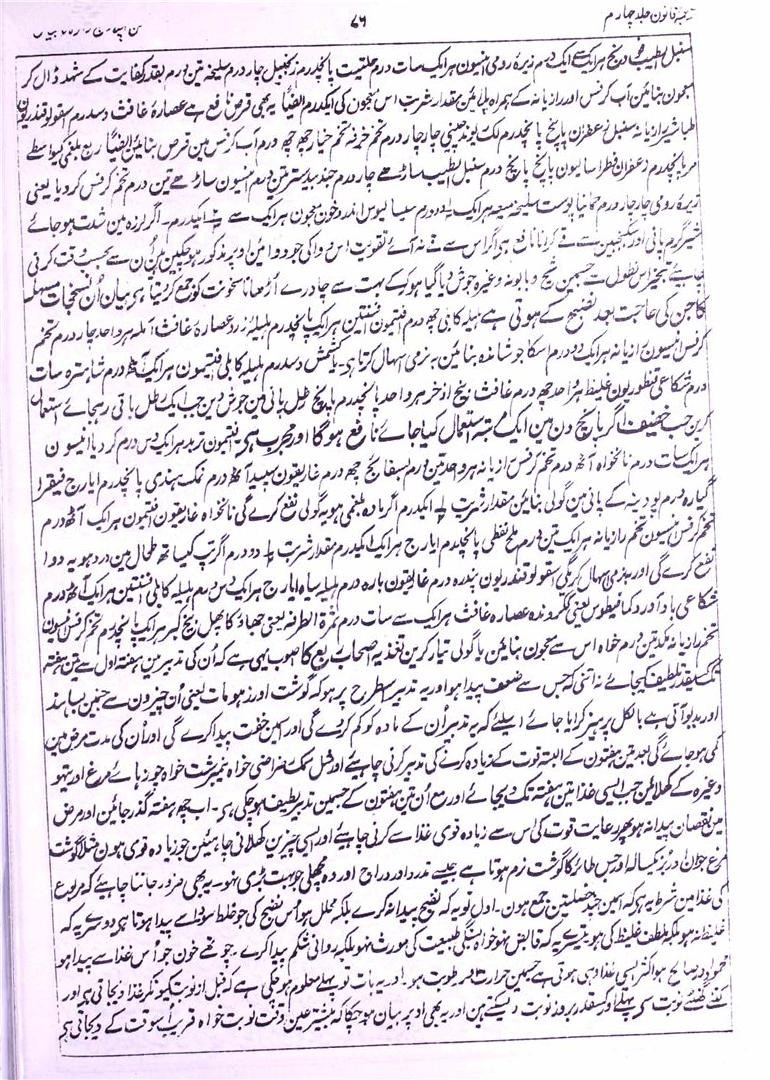 ترجمہ قانون جلد چہارم
۷۶
سنبل الطیب فودنج ہر ایک سے ایک درہم زیرہ رومی انیسون ہر ایک سات درم حلتیت پانچدرم زنجبیل چار درم سلیخہ تین درم بقدر کفایت کے شہد ڈال کر
معجون بنائیں آب کرفس اور رازیانہ کے ہمراہ پلائیں مقدار شربت اس معجون کی ایکدرم ایضاً یہ بھی قرص نافع ہے عصارہ غافث دسدرم اسقولوقندریون
طباشیر رازیانہ سنبل زعفران پانچ پانچدرم لک ریوند چینی چار چار درم تخم خرفہ تخم خیار چھ چھ درم آب کرفس میں قرص بنائیں ایضاً ربع بلغمی کیواسطے
مر پانچدرم زعفران فطراسالیون پانچ پانچ درم سنبل الطیب ساڑھے چار درم جندبیدستر تین درم انیسون ساڑھے تین درم تخم کرفس کرویا یعنی
زیرہ رومی چار چار درم پوست سلیخہ میعہ ہر ایک درم سیسالیوس معجون ہر ایک سے ایکدرم۔ اگر لرزہ میں شدت ہو جائے
شیر گرم پانی اور سکنجبین سے قے کرانا نافع ہے اگر اس سے قے نہ آئے تقویت اس دوا کی جو دوائیں اوپر مذکور ہو چکیں ہیں ان سے بحسب وقت کرنی
چاہیے بعد اس نطول سے جسمیں شیح و بابونہ وغیرہ جوش دیا گیا ہو کے بہت سے چادرے اڑھانا سخونت کو جمع کر دیتا ہے بیان ان نسخجات مسہلہ
کا جن کی حاجت بعد نضج کے ہوتی ہے ہلیلہ کابلی چھ درم افتیمون افسنتین ہر ایک پانچدرم ہلیلہ زرد عصارہ غافث آملہ ہر واحد چار درم تخم
کرفس انیسون رازیانہ ہر ایک دو درم اسکا جوشاندہ بنائیں بنرمی اسہال کرتا ہے کشمش دسدرم ہلیلہ کابلی افتیمون ہر ایک آٹھ درم شاہترہ سات
درم شکاعی قنطوریون غلیظ ہر واحد چھ درم غافث بیخ اذخر ہر واحد پانچدرم پانچ رطل پانی میں جوش دیں جب ایک رطل باقی رہجائے استعمال
کریں حب خفیف اگر پانچ دن میں ایک مرتبہ استعمال کیا جائے نافع ہوگا اور مجرب ہے افتیمون تربد ہر ایک دس درم کرویا انیسون
ہر ایک سات درم نانخواہ آٹھ درم تخم کرفس رازیانہ ہر واحد تین درم بسفائج چھ درم غاریقون سپید آٹھ درم نمک ہندی پانچدرم ایارج فیقرا
گیارہ درم پودینہ کے پانی میں گولی بنائیں مقدار شربت ایکدرم اگر مادہ بلغمی ہو یہ گولی نفع کرے گی نانخواہ غاریقون افتیمون ہر ایک آٹھ درم
تخم کرفس انیسون تخم رازیانہ ہر ایک تین درم ملح نفطی پانچدرم ایارج ہر ایک ایکدرم مقدار شربت دو درم اگر تپ کیساتھ طحال میں درد ہو یہ دوا
نفع کرے گی اور بنرمی اسہال کریگی اسقولوقندریون پندرہ درم غاریقون بارہ درم ہلیلہ سیاہ ایارج ہر ایک دس درم ہلیلہ کابلی افسنتین ہر ایک آٹھ درم
شکاعی بادآورد کمافیطوس یعنی ککروندہ عصارہ غافث ہر ایک سے سات درم ثمرۃ الطرفہ یعنی جھاؤ کا پھل بیخ کبر ہر ایک پانچدرم تخم کرفس انیسون
تخم رازیانہ تین درم خواہ اس سے معجون بنائیں یا گولی تیار کریں تغذیہ اصحاب ربع کا صوب یہی ہے کہ اُن کی تدبیر میں ہفتہ اول سے تین ہفتہ
تک بقدر تلطیف کیجائے نہ اتنی کہ جس سے ضعف پیدا ہو اور یہ تدبیر اسطرح پر ہو کہ گوشت اور زہومات یعنی اُن چیزوں سے جنمیں بساہند
اور بدبو آتی ہے بالکل پرہیز کرایا جائے اسلیئے کہ یہ تدبیر اُن کے مادہ کو کم کر دے گی اور اسمیں خفت پیدا کرے گی اور اُن کی مدت مرض میں
کمی ہو جائے گی بعد تین ہفتوں کے البتہ قوت کے زیادہ کرنے کی تدبیر کرنی چاہیے اور مثل سمک رضراضی خواہ بیضہ نیمبرشت خواہ چوزہائے مرغ اور تیہو
وغیرہ کے کھلائیں جب ایسی غذا تین ہفتہ تک دیجائے اور مع اُن تین ہفتوں کے جسمیں تدبیر لطیف ہو چکی ہے۔ اب چھ ہفتہ گذر جائیں اور مرض
میں نقصان پیدا نہ ہو پھر رعایت قوت کی اس سے زیادہ قوی غذا سے کرنی چاہیے اور ایسی چیزیں کھلانی چاہیئیں جو زیادہ قوی ہوں مثلا گوشت
مرغ جوان اور بزیکسالہ اور جس طائر کا گوشت نرم ہوتا ہے جیسے تدرو اور دراج اور وہ مچھلی جو بہت بڑی نہو۔ یہ بھی ضرور جاننا چاہیے کہ مربوع
کی غذا میں شرط یہ ہے کہ اسمیں چند خصلتیں جمع ہوں۔ اول تو یہ کہ نفخ پیدا نہ کرے بلکہ محلل ہو اُس نفخ کی جو خلط سودا سے پیدا ہوتا ہے دوسرے یہ کہ
غلیظ نہ ہو بلکہ ملطف غلیظ کی ہو تیسرے یہ کہ قابض نہو خواہ بستگی طبیعت کی مورث نہو بلکہ روانی شکم پیدا کرے۔ چوتھے خون جو اُس غذا سے پیدا ہو
محمود اور صالح ہو اکثر ایسی غذا وہی ہوتی ہے جسمیں حرارت اور رطوبت ہو۔ اور یہ بات تو پہلے معلوم ہو چکی ہے کہ قبل از نوبت کیونکر غذا دیجاتی ہے اور
کے گھنٹے نوبت سے پہلے اور کسقدر بروز نوبت دیتے ہیں اور یہ بھی اوپر بیان ہو چکا کہ پیشتر عین وقت نوبت خواہ قریب اُسوقت کے دیجاتی ہے